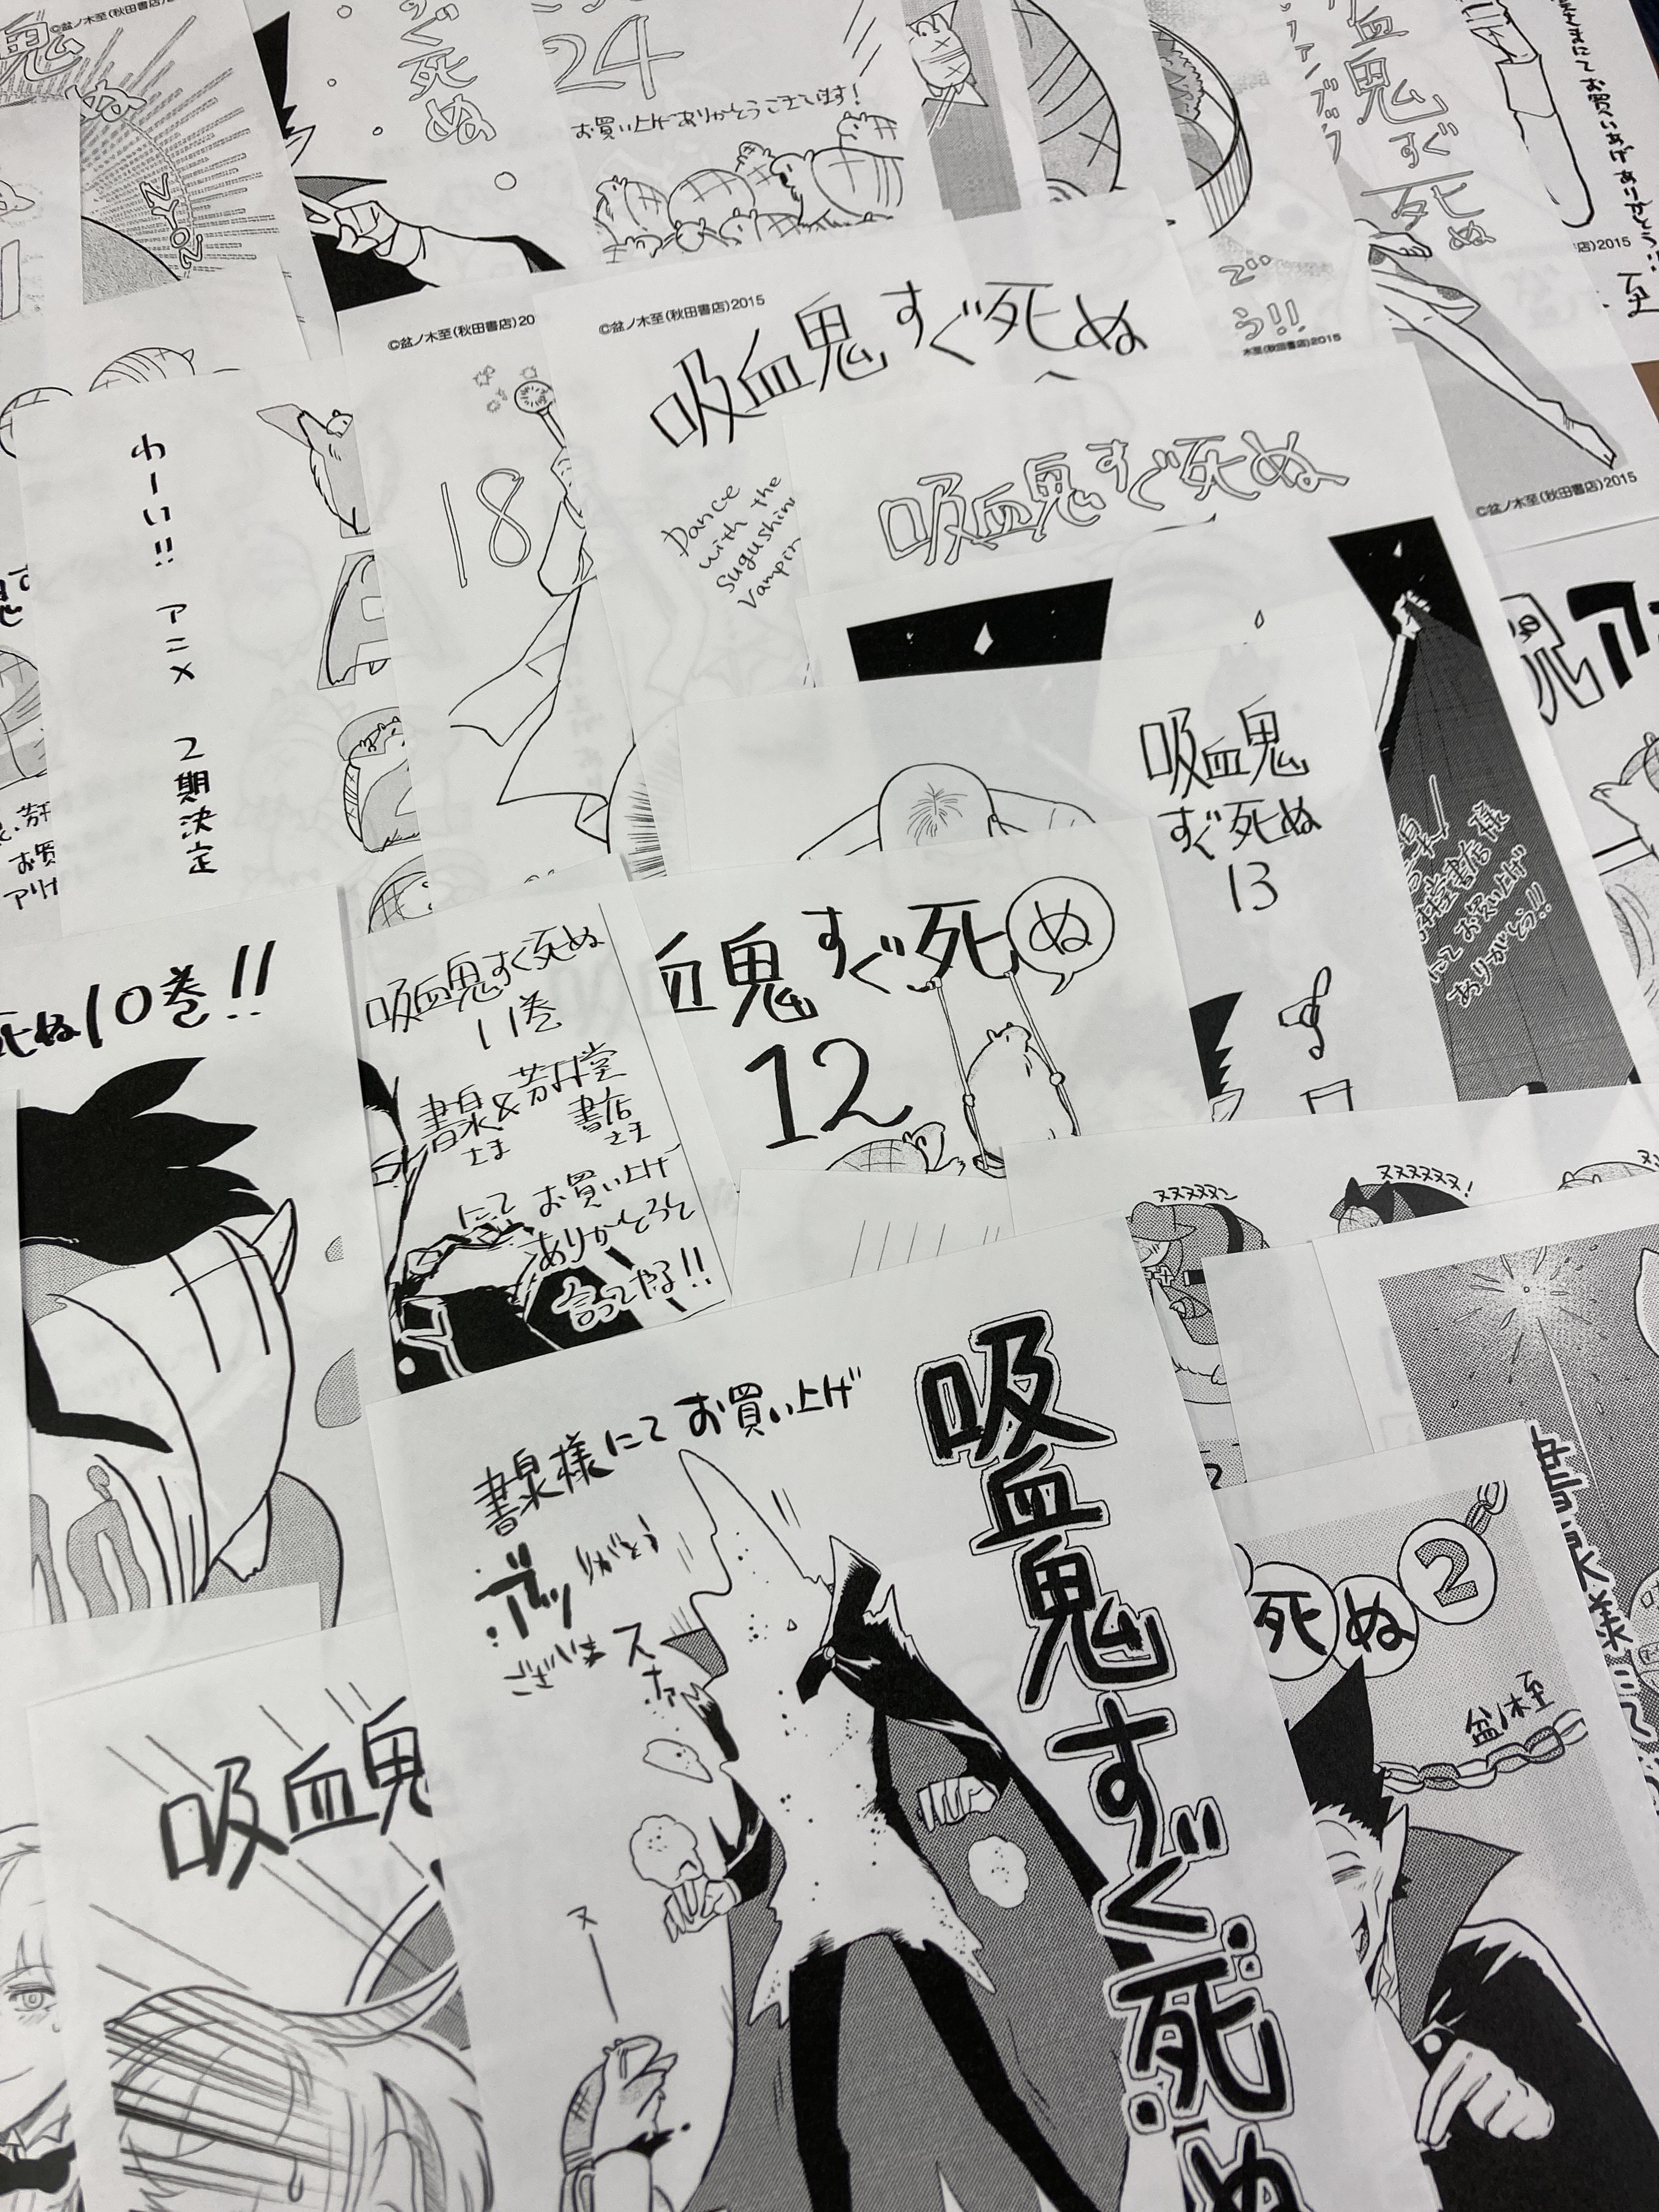 ©盆ノ木至(秋田書店)2015
鬼
ぬ
NYON
ぐ死ぬ
24
お買い上げありがとうございます!
©盆ノ木至(秋田書店)20
©盆ノ木至(秋田書店)2015
吸血鬼すぐ死ぬ
Dance
with the
Sugushin
Vampir
血鬼
すぐ
死
ぬ
ァンブック
う!!
木至(秋田書店)2015
にてお買いあげありがとう!!
店)2015
至
©盆ノ木至(秋田書店)2015
わーい!! アニメ 2期決定
18
吸血鬼すぐ死ぬ
吸血鬼
すぐ死ぬ
13
書店様
にてお買い上げ
ありがとう!!
死ぬ10巻!!
吸血鬼すぐ死ぬ
11巻
書泉&芳林堂
さま 書店
さま
にてお買い上げ
ありがとうって
言ってやる!!
血鬼すぐ死ぬ
12
ヌヌヌヌヌン
ヌヌヌヌヌヌ!
書泉様にてお買い上げ
りがとう
ございまス
ナァ
吸血鬼すぐ死ぬ
ヌー
死ぬ2
盆ノ木至
吸血鬼